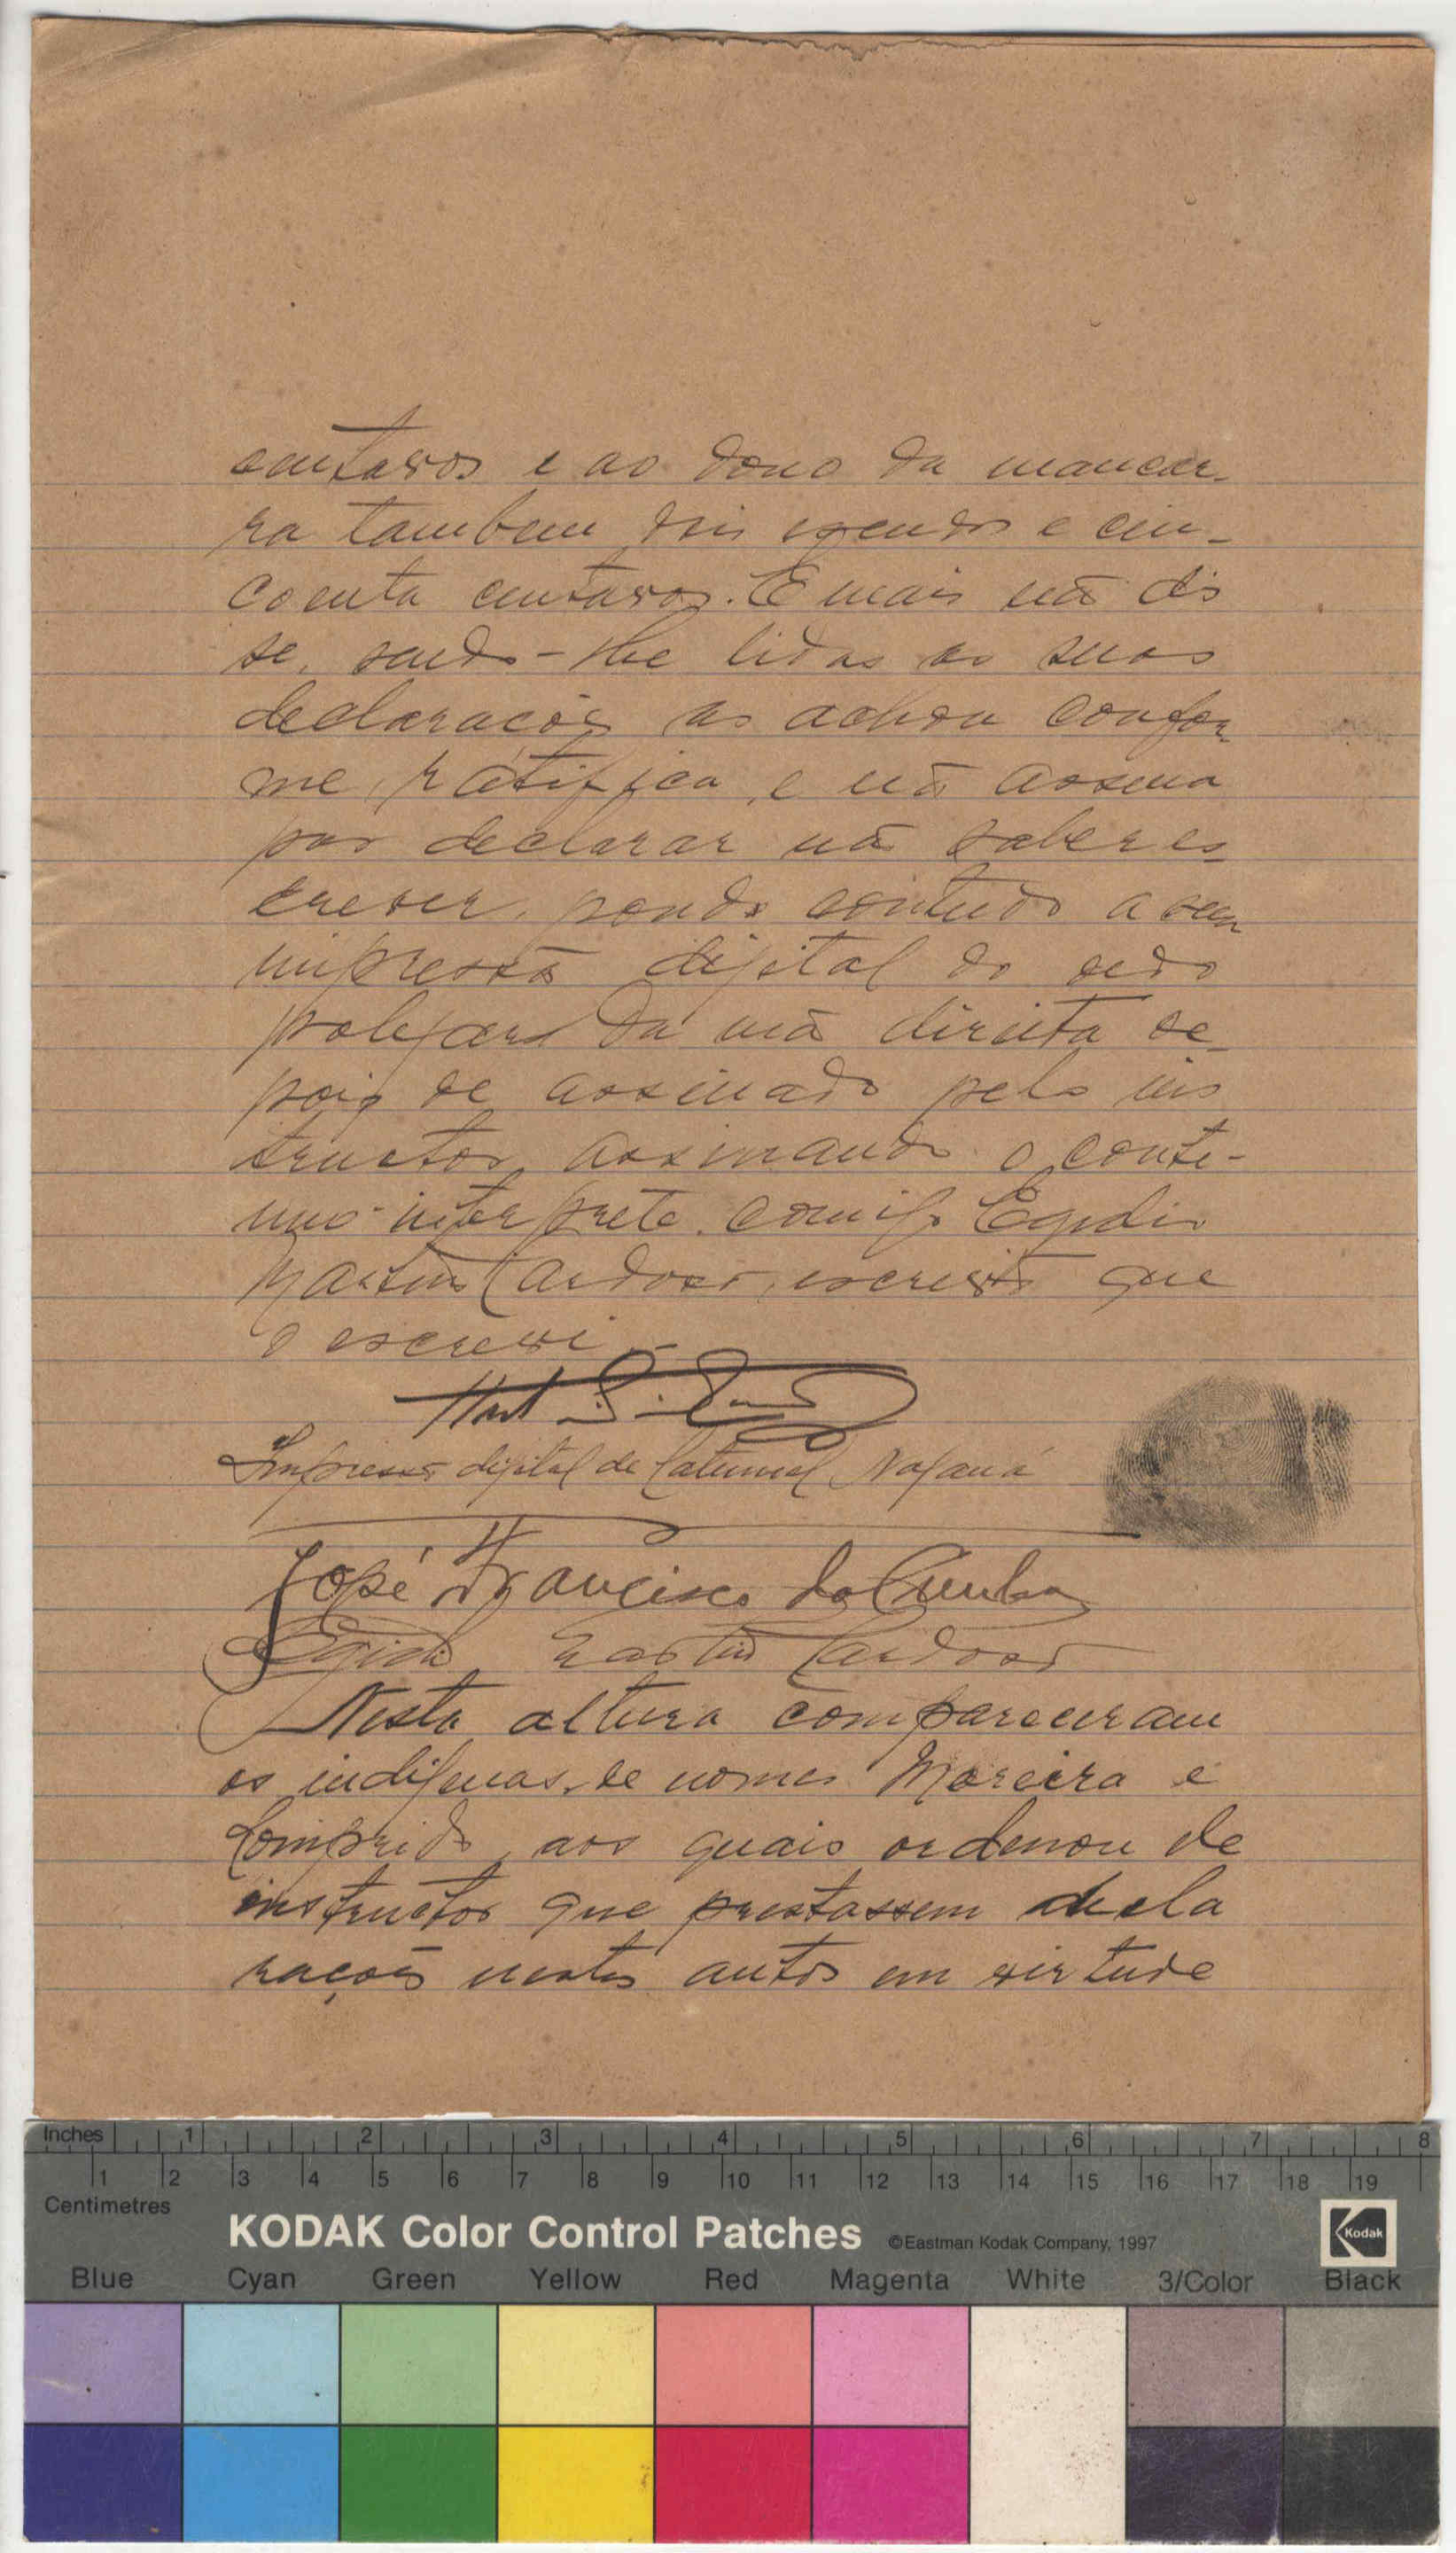 centavos e ao dono da mancar-
ra tambem dois escudos e cin-
coenta centavos. E mais não dis
se, sendo-lhe lidas as suas
declarações as achou confor
me, ratifica, e não assina
por declarar não saber es
crever, pondo contudo a sua
impressão digital do dedo
polegar da mão direita de
pois de assinado pelo ins
tructor, assinando o conte-
uno interprete comigo Egidio
Martins Cardoso, escrivão que
o escrevi.-
Impressão digital de Catumel Nafaná
José Francisco da Cunha
Egidio Martins Cardoso
Nesta altura compareceram
os indigenas de nomes Moreira e
Comprido, aos quais ordenou ele
instructor que prestassem decla
rações nestes autos em virtude
Inches 1 2 3 4 5 6 7 8
1 2 3 4 5 6 7 8 9 10 11 12 13 14 15 16 17 18 19
Centimetres
KODAK Color Control Patches ©Eastman Kodak Company, 1997 Kodak
Blue Cyan Green Yellow Red Magenta White 3/Color Black